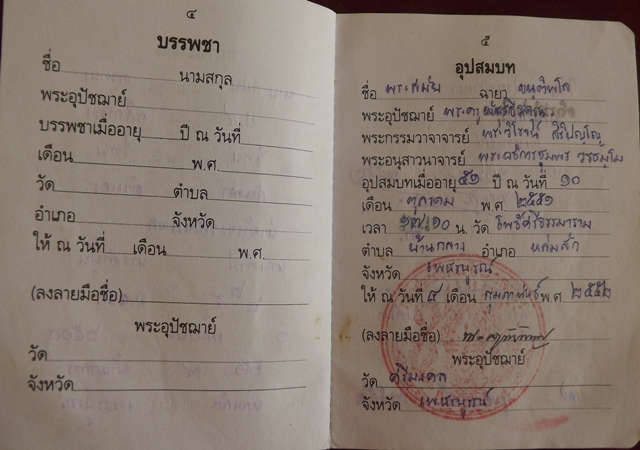 ๔
บรรพชา
ชื่อ นามสกุล
พระอุปัชฌาย์
บรรพชาเมื่ออายุ ปี ณ วันที่
เดือน พ.ศ.
วัด ตำบล
อำเภอ จังหวัด
ให้ ณ วันที่ เดือน พ.ศ.
(ลงลายมือชื่อ)
พระอุปัชฌาย์
วัด
จังหวัด
๕
อุปสมบท
ชื่อ พระสมัย ฉายา
พระอุปัชฌาย์ พระครู
พระกรรมวาจาจารย์ พระวิโรจน์ สิริปญฺโญ
พระอนุสาวนาจารย์ พระอธิการชุมพร
อุปสมบทเมื่ออายุ ๕๑ ปี ณ วันที่ ๑๐
เดือน ตุลาคม พ.ศ ๒๕๕๑
เวลา น. วัด โพธิ์ศรีธรรมาราม
ตำบล บ้านกลาง อำเภอ หล่มสัก
จังหวัด เพชรบูรณ์
ให้ ณ วันที่ ๙ เดือน กุมภาพันธ์ พ.ศ. ๒๕๕๒
(ลงลายมือชื่อ)
พระอุปัชฌาย์
วัด ศรีมงคล
จังหวัด เพชรบูรณ์